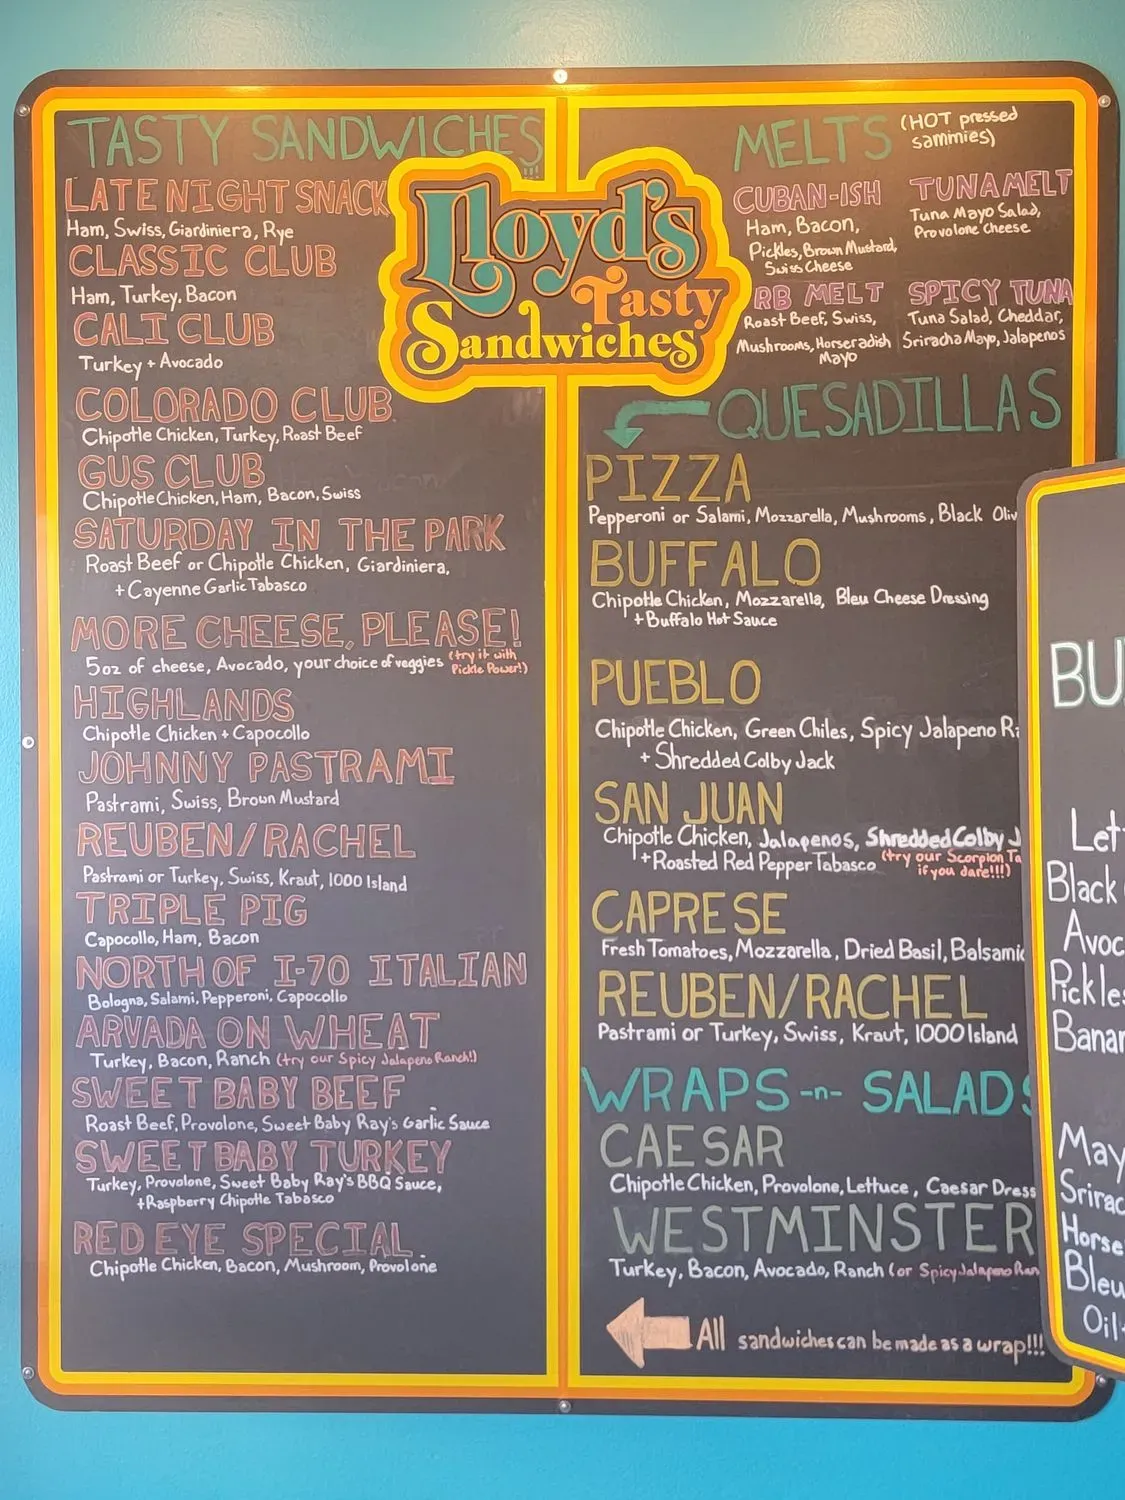 TASTY SANDWICHES!!!
LATE NIGHT SNACK
Ham, Swiss, Giardiniera, Rye
CLASSIC CLUB
Ham, Turkey, Bacon
CALI CLUB
Turkey + Avocado
COLORADO CLUB
Chipotle Chicken, Turkey, Roast Beef
GUS CLUB
Chipotle Chicken, Ham, Bacon, Swiss
SATURDAY IN THE PARK
Roast Beef or Chipotle Chicken, Giardiniera,
+ Cayenne Garlic Tabasco
MORE CHEESE, PLEASE!
5oz of cheese, Avocado, your choice of veggies (try it with
Pickle Power!)
HIGHLANDS
Chipotle Chicken + Capocollo
JOHNNY PASTRAMI
Pastrami, Swiss, Brown Mustard
REUBEN/RACHEL
Pastrami or Turkey, Swiss, Kraut, 1000 Island
TRIPLE PIG
Capocollo, Ham, Bacon
NORTH OF I-70 ITALIAN
Bologna, Salami, Pepperoni, Capocollo
ARVADA ON WHEAT
Turkey, Bacon, Ranch (try our Spicy Jalapeno Ranch!)
SWEET BABY BEEF
Roast Beef, Provolone, Sweet Baby Ray's Garlic Sauce
SWEET BABY TURKEY
Turkey, Provolone, Sweet Baby Ray's BBQ Sauce,
+Raspberry Chipotle Tabasco
RED EYE SPECIAL
Chipotle Chicken, Bacon, Mushroom, Provolone
Lloyd's
Tasty
Sandwiches
MELTS (HOT pressed
sammies)
CUBAN-ISH
Ham, Bacon,
Pickles, Brown Mustard,
Swiss Cheese
TUNA MELT
Tuna Mayo Salad,
Provolone Cheese
RB MELT
Roast Beef, Swiss,
Mushrooms, Horseradish
Mayo
SPICY TUNA
Tuna Salad, Cheddar,
Sriracha Mayo, Jalapenos
QUESADILLAS
PIZZA
Pepperoni or Salami, Mozzarella, Mushrooms, Black Oliv
BUFFALO
Chipotle Chicken, Mozzarella, Bleu Cheese Dressing
+ Buffalo Hot Sauce
PUEBLO
Chipotle Chicken, Green Chiles, Spicy Jalapeno Ra
+ Shredded Colby Jack
SAN JUAN
Chipotle Chicken, Jalapenos, Shredded Colby J
+Roasted Red Pepper Tabasco (try our Scorpion Ta
if you dare!!!)
CAPRESE
Fresh Tomatoes, Mozzarella, Dried Basil, Balsamic
REUBEN/RACHEL
Pastrami or Turkey, Swiss, Kraut, 1000 Island
WRAPS -n- SALADS
CAESAR
Chipotle Chicken, Provolone, Lettuce, Caesar Dress
WESTMINSTER
Turkey, Bacon, Avocado, Ranch (or Spicy Jalapeno Ran
All sandwiches can be made as a wrap!!!
BU
Let
Black
Avoc
Pickles
Banar
May
Srirac
Horse
Bleu
Oil